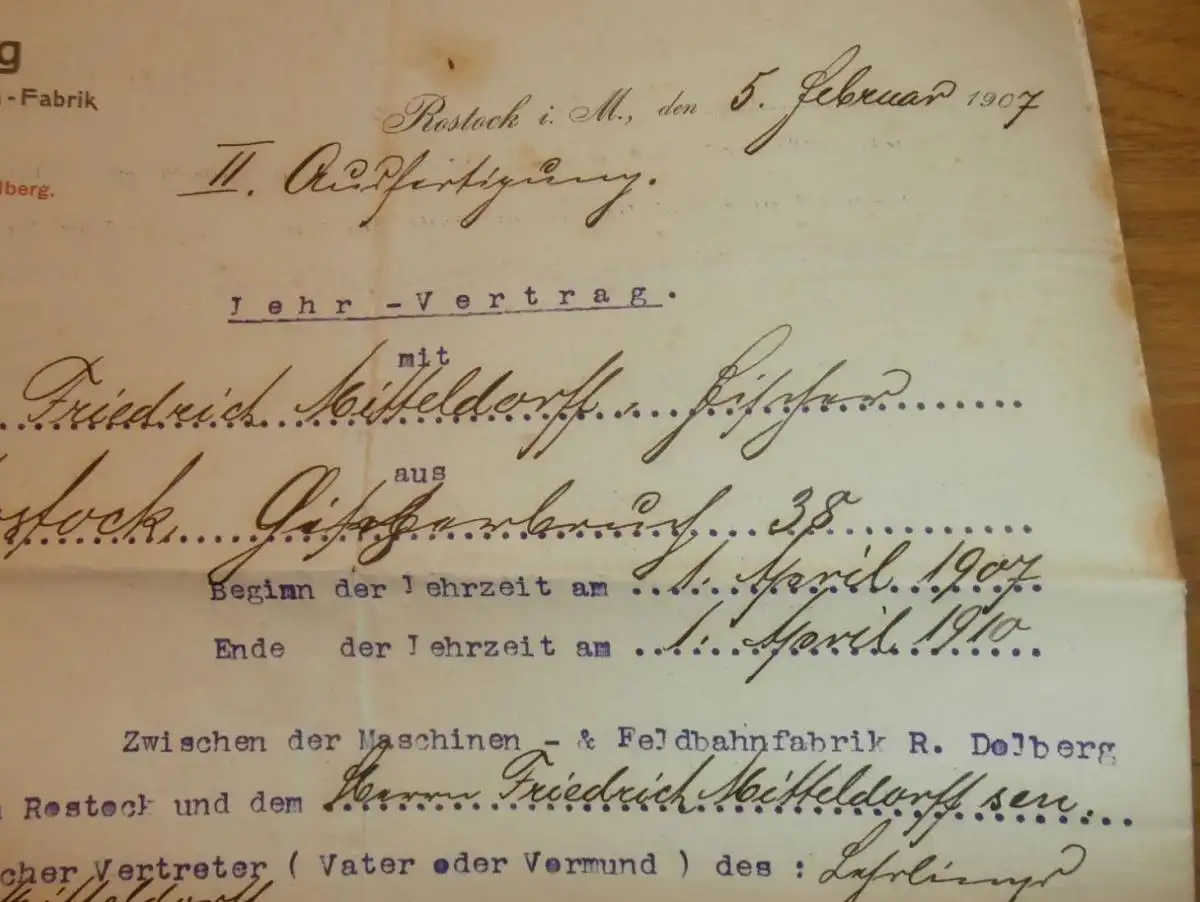 g
- Fabrik
lberg.
Rostock i. M., den 5. Februar 1907
II. Ausfertigung.
Lehr - Vertrag.
mit
Friedrich Mitteldorff, Fischer
aus
ostock, 38
Beginn der Lehrzeit am 1. April 1907
Ende der Lehrzeit am 1. April 1910
Zwischen der Maschinen - & Feldbahnfabrik R. Dolberg
Rostock und dem Herrn Friedrich Mitteldorff sen.
cher Vertreter ( Vater oder Vormund ) des : Lehrlings
Mitteldorff